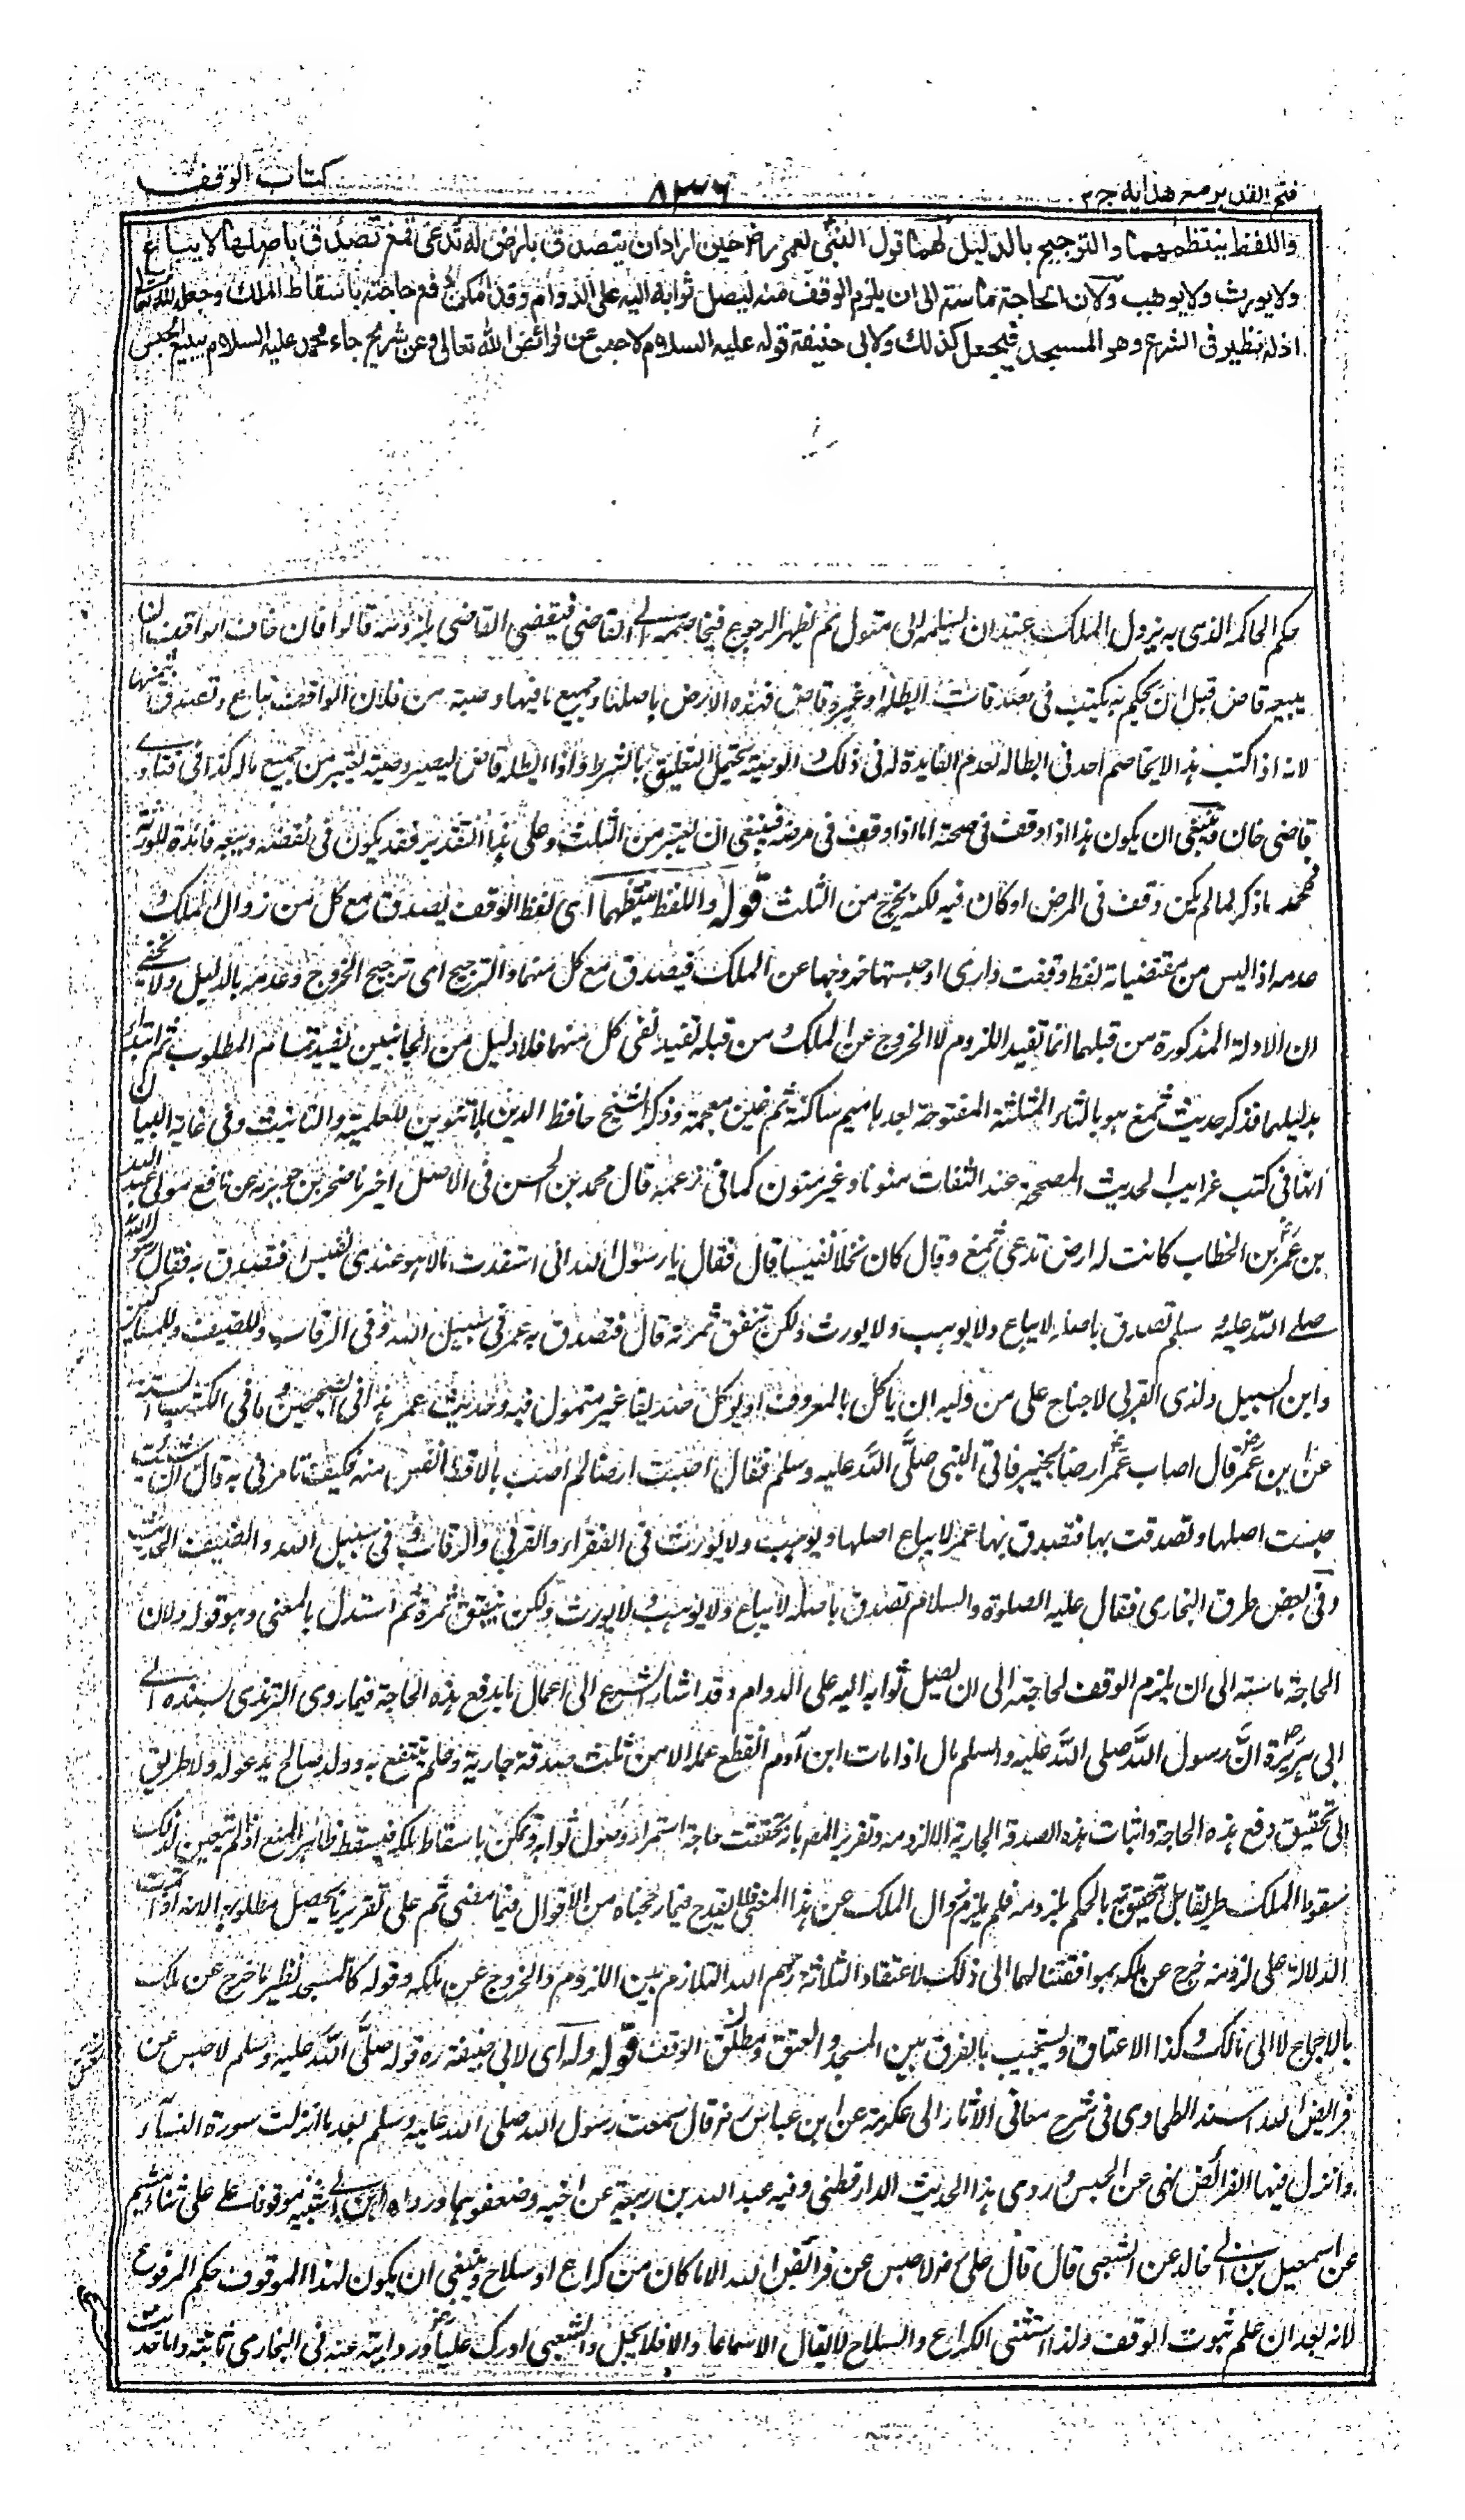 فتح القدير مع هداية ج ٢
٨٣٦
كتاب الوقف
واللفظ ينتظمهما والترجيح بالدليل لهما قول النبي لعمر رض حين اراد ان يتصدق بارض له تدعى ثمغ تصدق باصلها لا يباع
ولا يورث ولا يوهب ولان الحاجة ماسة الى ان يلزم الوقف منه ليصل ثوابه اليه على الدوام وقد امكن دفع حاجته باسقاط الملك وجعله لله تعالى
اذ له نظير فى الشرع وهو المسجد فيجعل كذلك ولابى حنيفة قوله عليه السلام لا حبس عن فرائض الله تعالى وعن شريح جاء محمد عليه السلام ببيع الحبس
حكم الحاكم الذى به يزول الملك عنده ان يسلمه الى متول ثم يظهر الرجوع فيخاصمه الى القاضى فيقضى القاضى بلزومه قالوا فان خاف الواقف ان
يبيعه قاض قبل ان يحكم به يكتب فى صدقات ابطله او غيره قاض فهذه الارض باصلها وجميع ما فيها وصية من فلان الواقف تباع وتصدق بثمنها
لانه اذا كتب هذا لا يخاصم احد فى ابطاله لعدم الفايدة له فى ذلك الوصية يحتمل التعليق بالشرط واذا ابطله قاض ليصير وصية يعتبر من جميع ماله كذا فى فتاوى
قاضى خان وينبغى ان يكون هذا اذا وقف فى صحته اما اذا وقف فى مرضه فينبغى ان يعتبر من الثلث وعلى هذا التقدير فقد يكون فى نقضه وبيعه فائدة للورثة
فمحمد ما ذكر لما لم يكن وقف فى المرض او كان فيه لكنه يخرج من الثلث قوله واللفظ ينتظمهما اى لفظ الوقف يصدق مع كل من زوال الملك و
عدمه اذ ليس من مقتضياته لفظ وقفت دارى او حبستها خروجها عن الملك فيصدق مع كل منهما والترجيح اى ترجيح الخروج وعدمه بالدليل ولا يخفى
ان الادلة المذكورة من قبلهما انما تفيد اللزوم لا الخروج عن الملك ومن قبله تفيد نفى كل منهما فلا دليل من الجانبين يفيد تمام المطلوب ثم ابتدأ
بدليلهما فذكر حديث ثمغ هو بالثاء المثلثة المفتوحة بعدها ميم ساكنة ثم غين معجمة وذكر الشيخ حافظ الدين بلا تنوين للعلمية والتانيث وفى غاية البيان
انها فى كتب غرايب الحديث المصححة عند الثقات منونا وغير منون كما فى زعمه قال محمد بن الحسن فى الاصل اخبرنا صخر بن جويرية عن نافع مولى عبد الله
بن عمر بن الخطاب كانت له ارض تدعى ثمغ وقال كان نخلا نفيسا قال فقال يا رسول الله انى استفدت مالا هو عندى نفيس فتصدق به فقال رسول الله
صلى الله عليه وسلم تصدق باصله لا يباع ولا يوهب ولا يورث ولكن تنفق ثمرته قال فتصدق به عمر فى سبيل الله وفى الرقاب وللضيف وللمساكين
وابن السبيل ولذى القربى لا جناح على من وليه ان ياكل بالمعروف او يوكل صديقا غير متمول فيه وحديث عمر هذا فى الصحيحين وما فى الكتب الستة
عن ابن عمر قال اصاب عمر ارضا بخيبر فاتى النبى صلى الله عليه وسلم فقال اصبت ارضا لم اصب مالا قط انفس منه فكيف تامرنى به قال ان شئت
حبست اصلها وتصدقت بها فتصدق بها عمر لا يباع اصلها ويوهب ولا يورث فى الفقراء والقربى والرقاب وفى سبيل الله والضيف الحديث
وفى بعض طرق البخارى فقال عليه الصلوة والسلام تصدق باصله لا يباع ولا يوهب ولا يورث ولكن ينفق ثمره ثم استدل بالمعنى وهو قوله ولان
الحاجة ماسة الى ان يلزم الوقف لحاجته الى ان يصل ثوابه اليه على الدوام وقد اشار الشرع الى اعمال ما يدفع هذه الحاجة فيما روى الترمذى بسنده الى
ابى هريرة ان رسول الله صلى الله عليه وسلم قال اذا مات ابن آدم انقطع عمله الا من ثلث صدقة جارية وعلم ينتفع به وولد صالح يدعو له ولا طريق
الى تحقيق دفع هذه الحاجة واثبات هذه الصدقة الجارية الا لزومه وتقرير المصـ بانه تحققت حاجة استمرار وصول ثوابه ويمكن باسقاط ملكه فيسقط ظاهر المنع اذ لم يتعين لذلك
سقوط الملك طريقا بل يتحقق بالحكم بلزومه فلم يلزم زوال الملك عن هذا المعنى لا يقدح فيما رجحناه من الاقوال فيما مضى ثم على تقريرنا يحصل مطلوبه الا انه اذا تمت
الدلالة على لزومه خرج عن ملكه بموافقتنا لهما الى ذلك لاعتقاد الثلاثة رحمهم الله التلازم بين اللزوم والخروج عن ملكه وقوله كالمسجد نظير ما خرج عن ملك
بالاجماع لا الى مالك وكذا الاعتاق ويستجيب بالفرق بين المسجد والعتق ومطلق الوقف قوله وله اى لابى حنيفة ره قوله صلى الله عليه وسلم لا حبس عن
فرايض الله اسند الطحاوى فى شرح معانى الآثار الى عكرمة عن ابن عباس رض قال سمعت رسول الله صلى الله عليه وسلم بعد ما انزلت سورة النساء
وانزل فيها الفرائض نهى عن الحبس وروى هذا الحديث الدارقطنى وفيه عبد الله بن ربيعة عن اخيه وضعفوهما ورواه ابن ابى شيبة موقوفا على على ثنا هشيم
عن اسمعيل بن ابى خالد عن الشعبى قال قال على رض لا حبس عن فرائض الله الا ما كان من كراع او سلاح وينبغى ان يكون لهذا الموقوف حكم المرفوع
لانه بعد ان علم ثبوت الوقف ولذا استثنى الكراع والسلاح لا يقال الا سماعا والا فلا يحل والشعبى ادرك عليا وروايته عنه فى البخارى ثابتة واما حديث